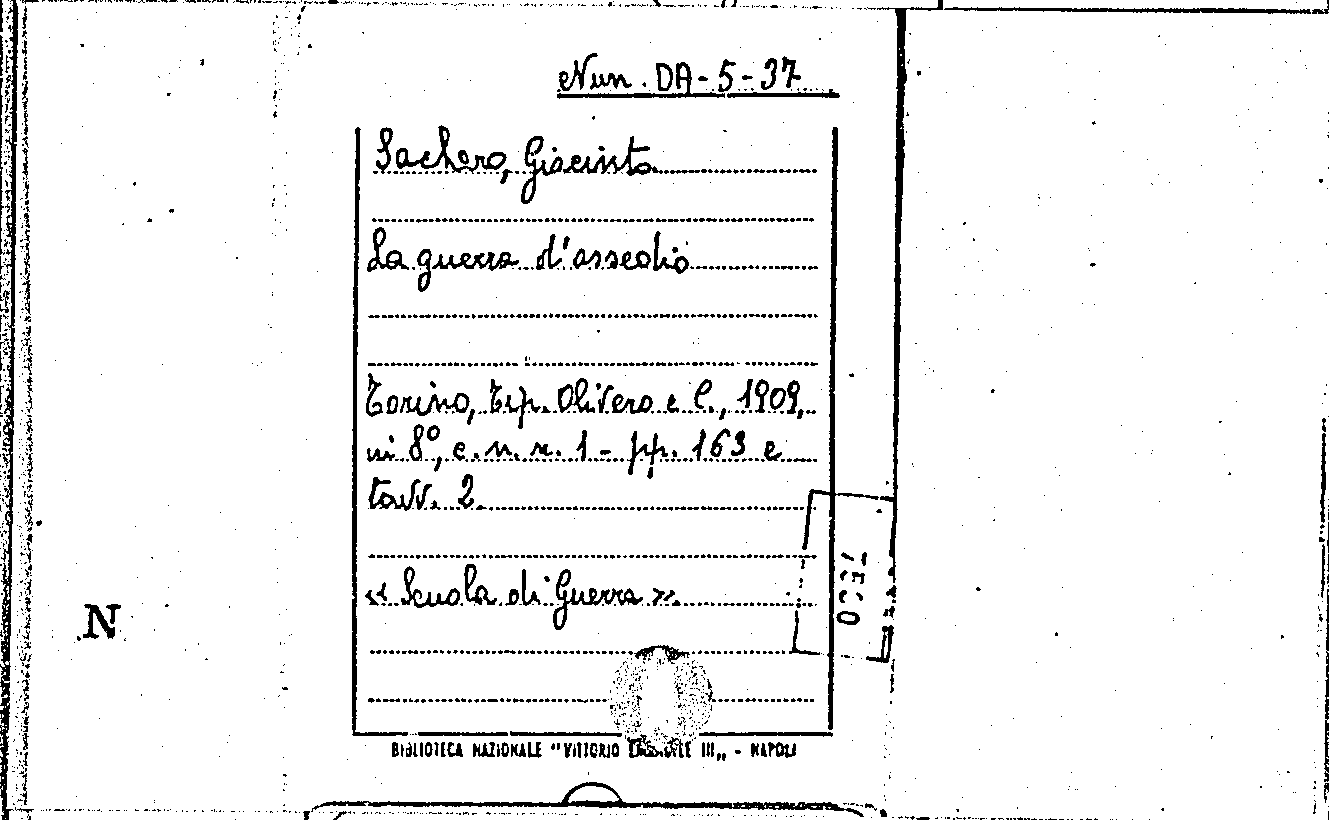 Nun. DA-5-37
Sachero, Giacinto
La guerra d'assedio
Torino, Tip. Olivero e C., 1909,
in 8°, c. n. n. 1 - pp. 163 e
tavv. 2.
« Scuola di Guerra ».
N
BIBLIOTECA NAZIONALE "VITTORIO EMANUELE III„ - NAPOLI